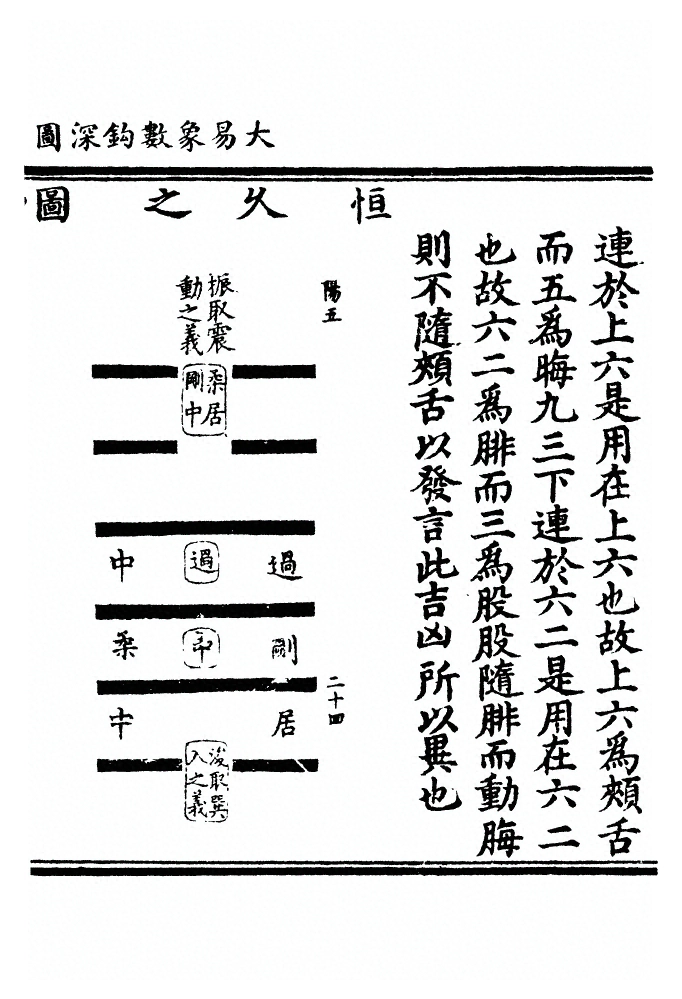 大易象數鈎深圖
連於上六是用在上六也故上六爲頰舌
而五爲晦九三下連於六二是用在六二
也故六二爲腓而三爲股股隨腓而動晦
則不隨頰舌以發言此吉凶所以異也
恒久之圖
陽五
二十四
振取震
動之義
柔居
剛中
過
過
中
剛
中
柔
居
中
浚取巽
入之義